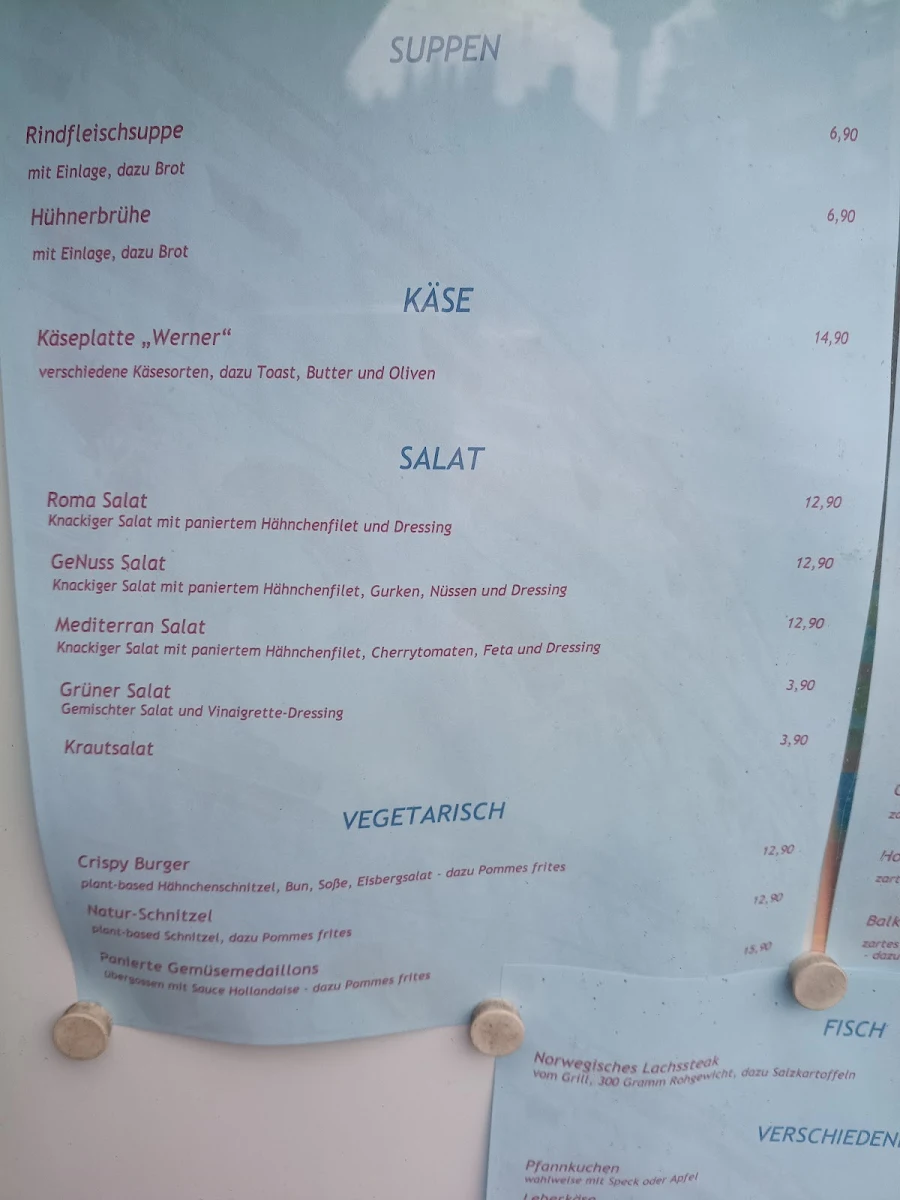 SUPPEN
Rindfleischsuppe 6,90
mit Einlage, dazu Brot
Hühnerbrühe 6,90
mit Einlage, dazu Brot
KÄSE
Käseplatte „Werner“ 14,90
verschiedene Käsesorten, dazu Toast, Butter und Oliven
SALAT
Roma Salat 12,90
Knackiger Salat mit paniertem Hähnchenfilet und Dressing
GeNuss Salat 12,90
Knackiger Salat mit paniertem Hähnchenfilet, Gurken, Nüssen und Dressing
Mediterran Salat 12,90
Knackiger Salat mit paniertem Hähnchenfilet, Cherrytomaten, Feta und Dressing
Grüner Salat 3,90
Gemischter Salat und Vinaigrette-Dressing
Krautsalat 3,90
VEGETARISCH
Crispy Burger 12,90
plant-based Hähnchenschnitzel, Bun, Soße, Eisbergsalat - dazu Pommes frites
Natur-Schnitzel 12,90
plant-based Schnitzel, dazu Pommes frites
Panierte Gemüsemedaillons 15,90
übergossen mit Sauce Hollandaise - dazu Pommes frites
zart
Balk
zartes
- dazu
FISCH
Norwegisches Lachssteak
vom Grill, 300 Gramm Rohgewicht, dazu Salzkartoffeln
VERSCHIEDEN
Pfannkuchen
wahlweise mit Speck oder Apfel
Leberkäse